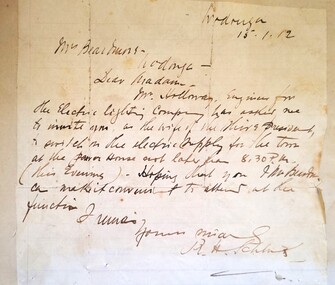 Wodonga
15.1.12
Mrs Beardmore
Wodonga
Dear Madam
Mr. Holloway, Engineer for
the Electric Lighting Company has asked me
to invite you, as the wife of the Shire President,
to switch on the electric supply for the town
at the Power House not later than 8.30 P.M.
(this Evening). Hoping that you & Mr Beardmore
can make it convenient to attend at the
function
I remain
Yours
R. H.